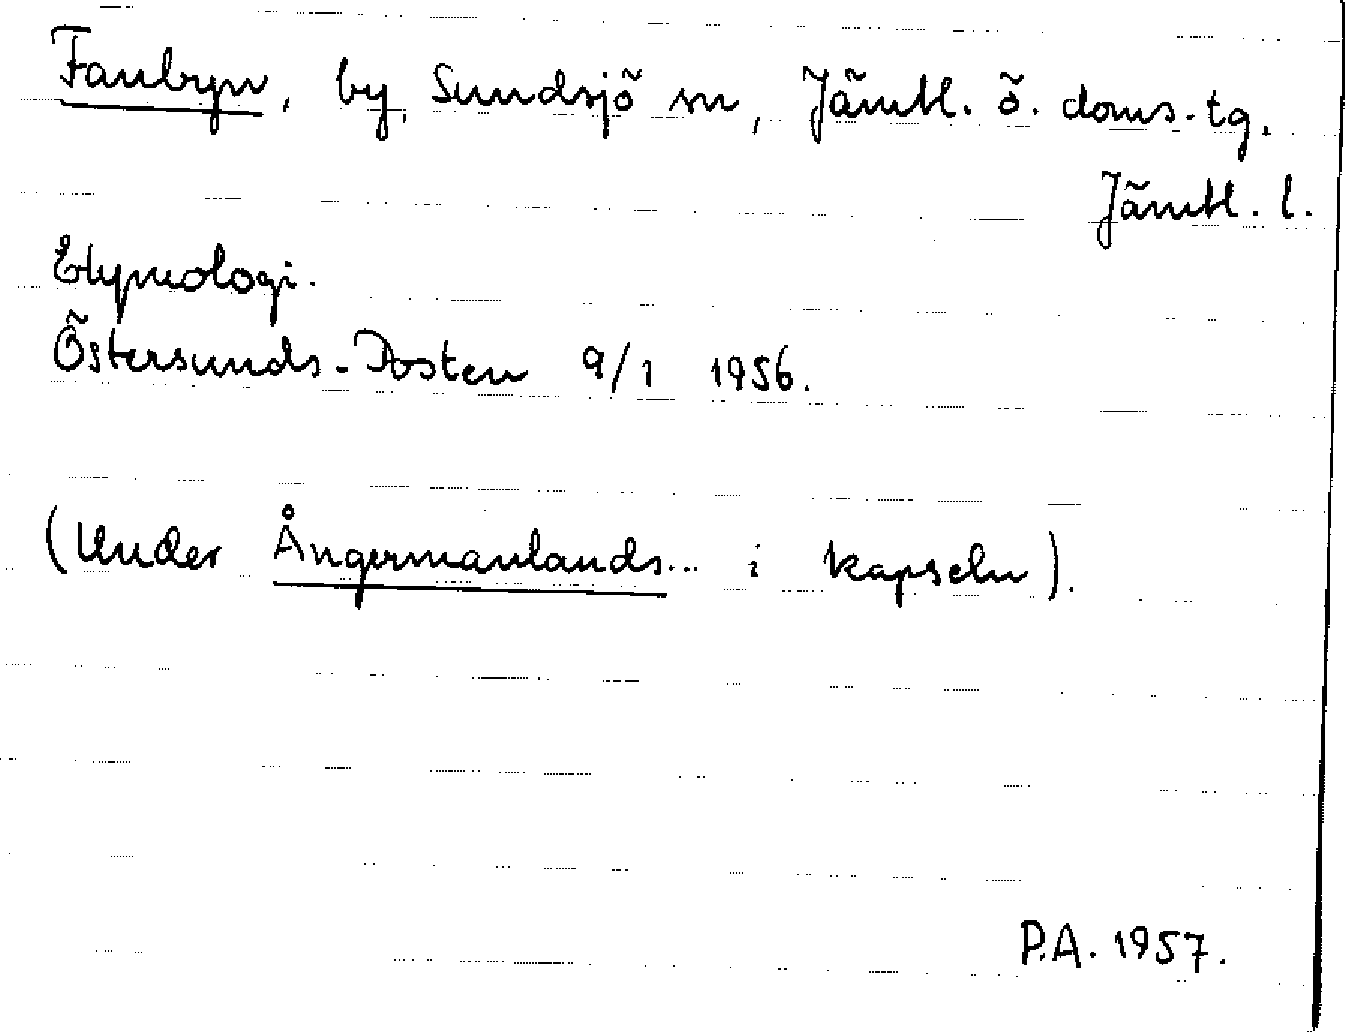 Fanbyn, by, Sundsjö sn, Jämtl. ö. doms. tg.
Jämtl. l.
Etymologi.
Östersunds-Posten 9/1 1956.
(Under Ångermanlands... i kapseln).
P.A. 1957.